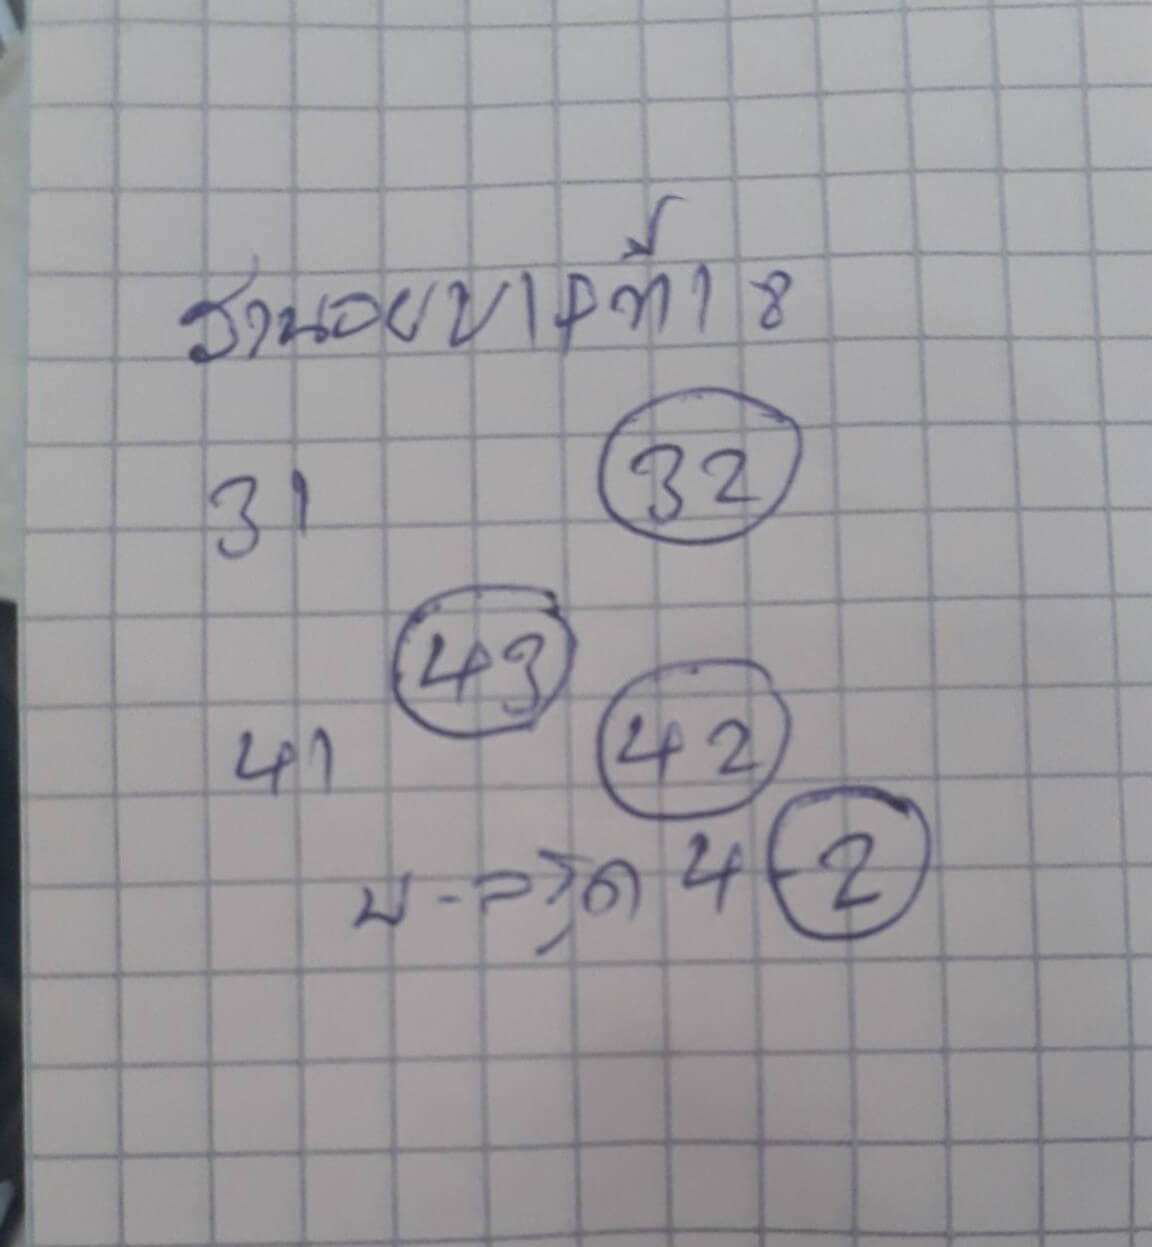 ฮานอยขาคที่ 18
31 32
43
41 42
บ-ล รูด 4-2